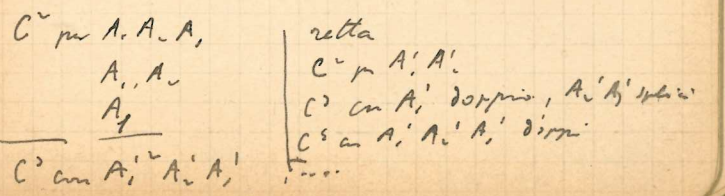 C² per A₁ A₂ A₃
A₁, A₂
A₁
C³ con A₁'² A₂' A₃'
retta
C² per A₁' A₂'
C³ con A₁' doppio, A₂' A₃' semplici
con A₁' A₂' A₃' doppi
....